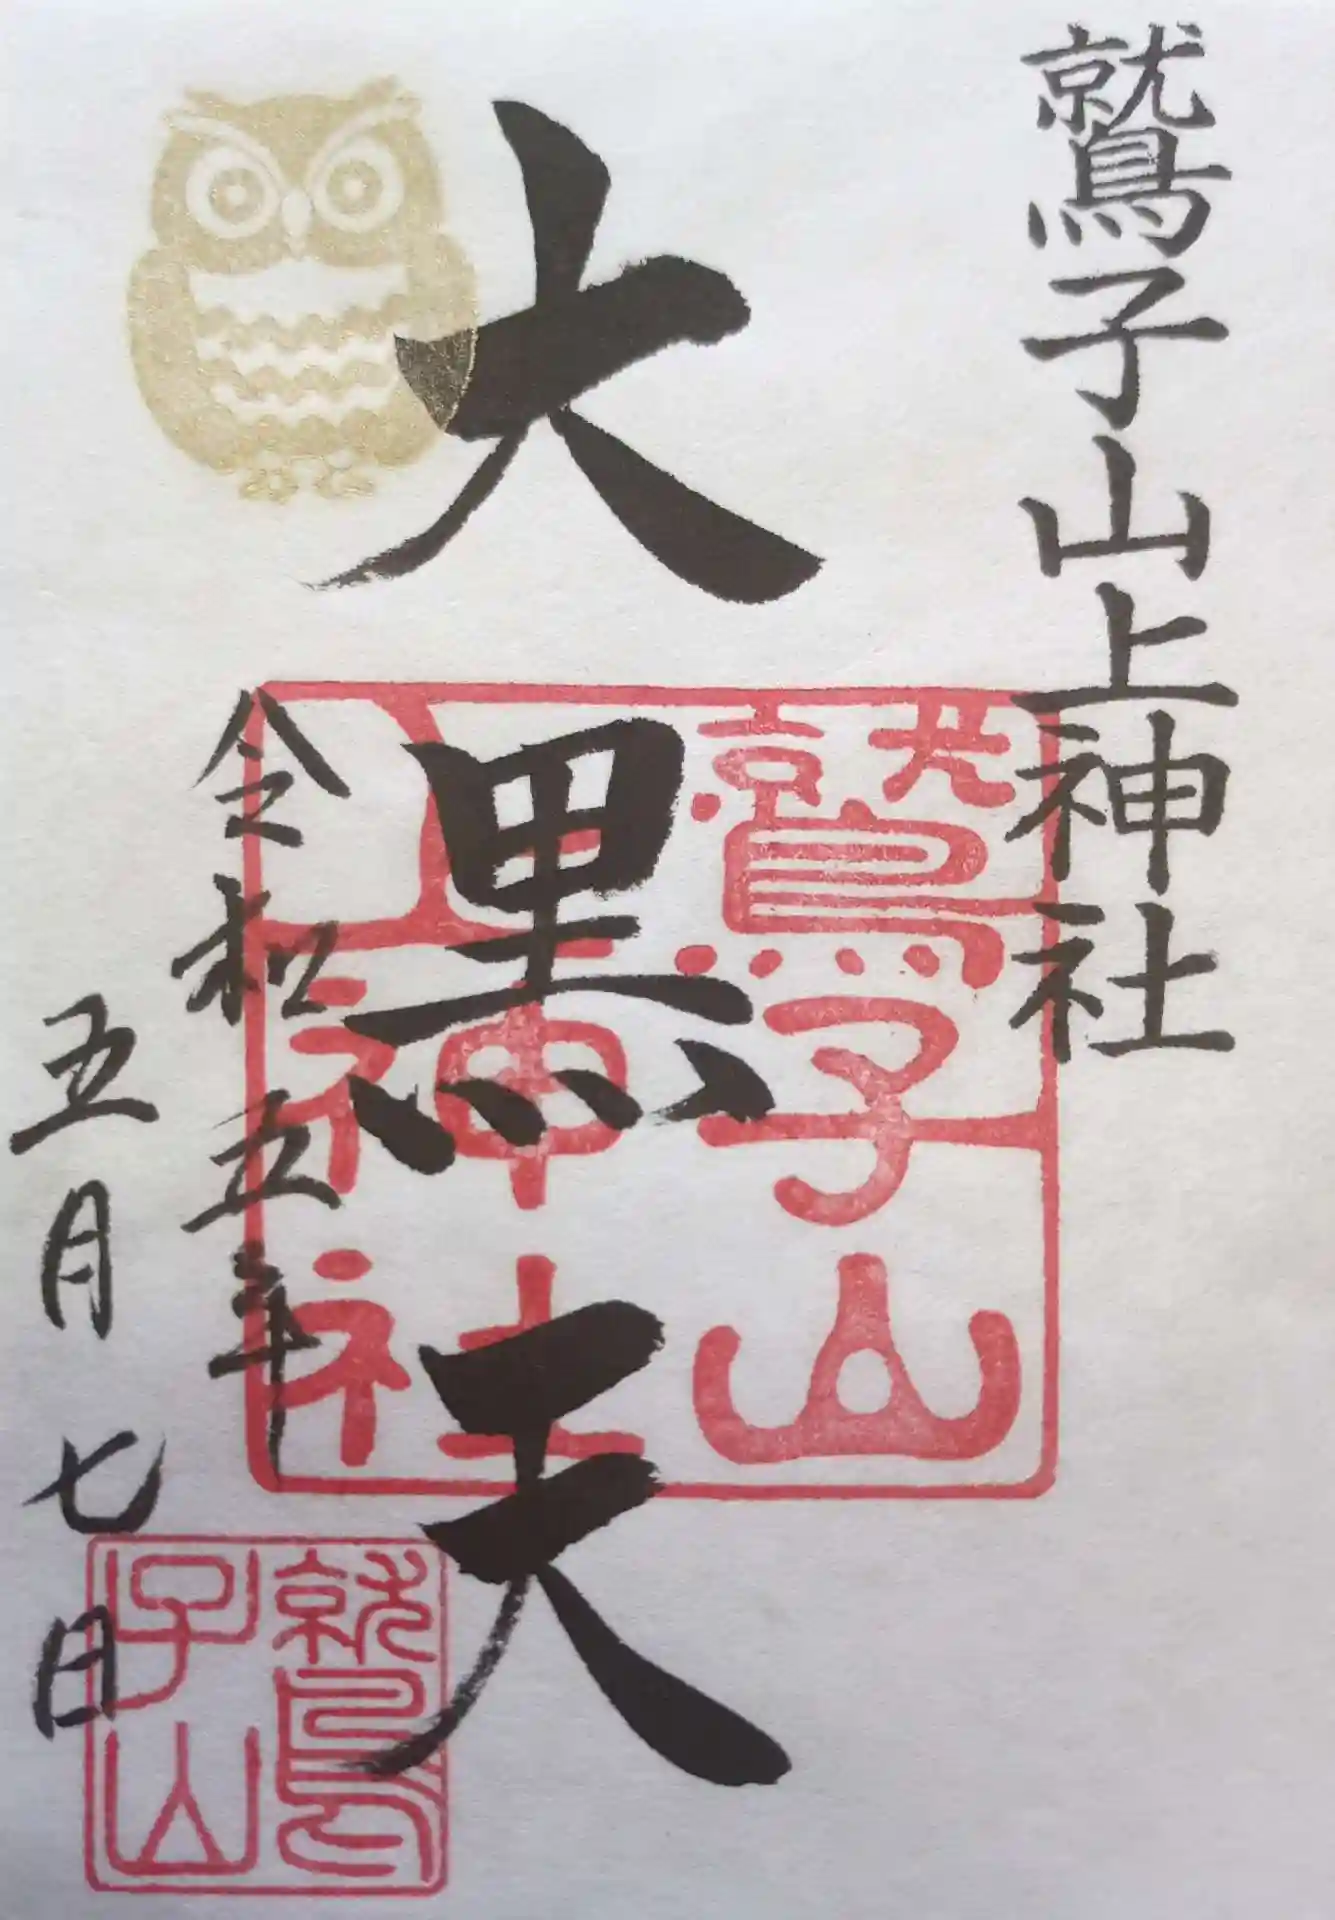 鷲子山上神社
大黒天
令和五年
五月七日
鷲子山
上神社
鷲
子山